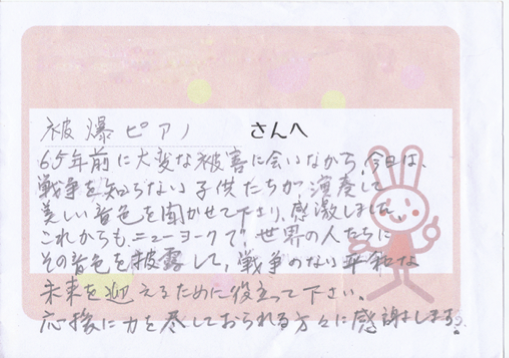 被爆ピアノ さんへ
65年前に大変な被害に会いながら、今日は、
戦争を知らない子供たちが演奏して
美しい音色を聞かせて下さり、感激しました。
これからも、ニューヨークで世界の人たちに
その音色を披露して、戦争のない平和な
未来を迎えるために役立って下さい。
応援に力を尽しておられる方々に感謝します。